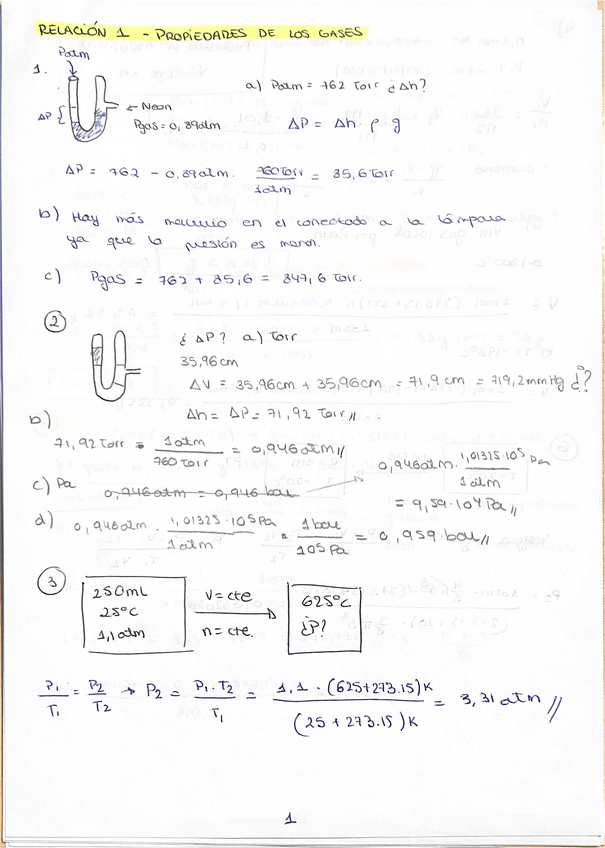 RELACIÓN 1 - PROPIEDADES DE LOS GASES
1.
Patm
ΔP
← Neon
Pgas = 0,89atm
a) Patm = 762 Torr ¿Δh?
ΔP = Δh · ρ g
ΔP = 762 - 0.89atm. 760 Torr / 1 atm = 85,6 Torr
b) Hay más mercurio en el conectado a la lámpara
ya que la presión es menor.
c) Pgas = 762 + 85,6 = 847,6 Torr.
2
¿ΔP? a) Torr
35,96cm
ΔV = 35,96cm + 35,96cm = 71,9 cm = 719,2 mmHg ¿?
Δh = ΔP = 71,92 Torr //
b)
71,92 Torr = 1 atm / 760 Torr = 0,946 atm //
c) Pa 0,946atm = 0,946 bar → 0,946atm · 1,01325·10⁵ Pa / 1 atm
= 9,59·10⁴ Pa //
d) 0,946atm · 1,01325·10⁵ Pa / 1 atm · 1 bar / 10⁵ Pa = 0,959 bar //
3
250mL
25ºC
1,1 atm
V = cte
n = cte.
625ºC
¿P?
P₁/T₁ = P₂/T₂ → P₂ = P₁ · T₂ / T₁ = 1,1 · (625+273.15) K / (25 + 273.15) K = 3,31 atm //
1